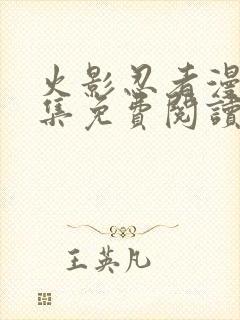 火影忍者漫
集免費閱讀
王英凡